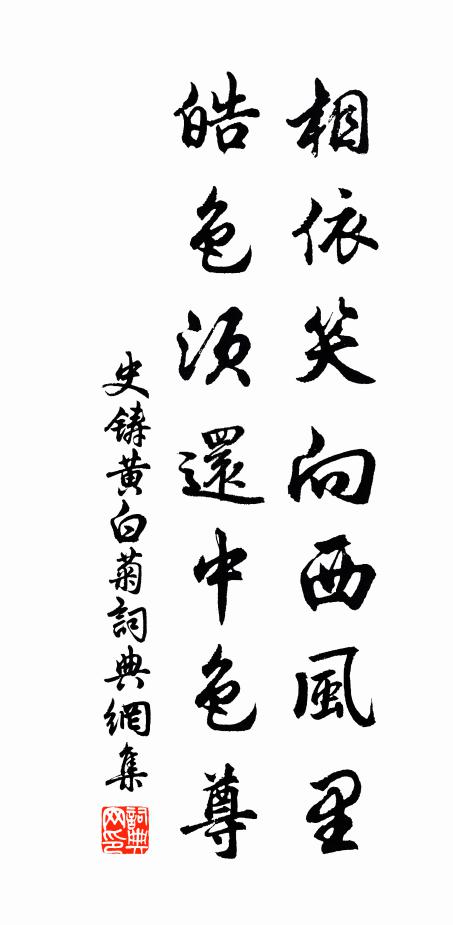 相依笑向西風里
皓色須還中色尊
史鑄黄白菊詞典網集
詞典网印